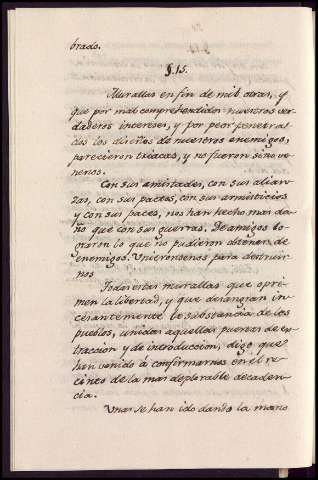 brado.
§. 15.
Murallas en fin de mil otras, y
que por mal comprehendidos nuestros ver-
daderos intereses, y por peor penetra-
dos los diseños de nuestros enemigos,
parecieron triacas, y no fueron sino ve-
nenos.
Con sus amistades, con sus alian-
zas, con sus pactos, con sus armisticios
y con sus paces, nos han hecho mas da-
ño que con sus guerras. De amigos lo-
graron lo que no pudieron obtener de
enemigos. Unieronse nos para destruir-
nos
Todas estas murallas que opri-
men la libertad, y que desangran in-
cesantemente la substancia de los
pueblos, unidas aquellas puertas de ex-
traccion y de introduccion, digo que
han venido á confirmarnos en el re-
cinto de la mas deplorable decaden-
cia.
Unas se han ido dando la mano